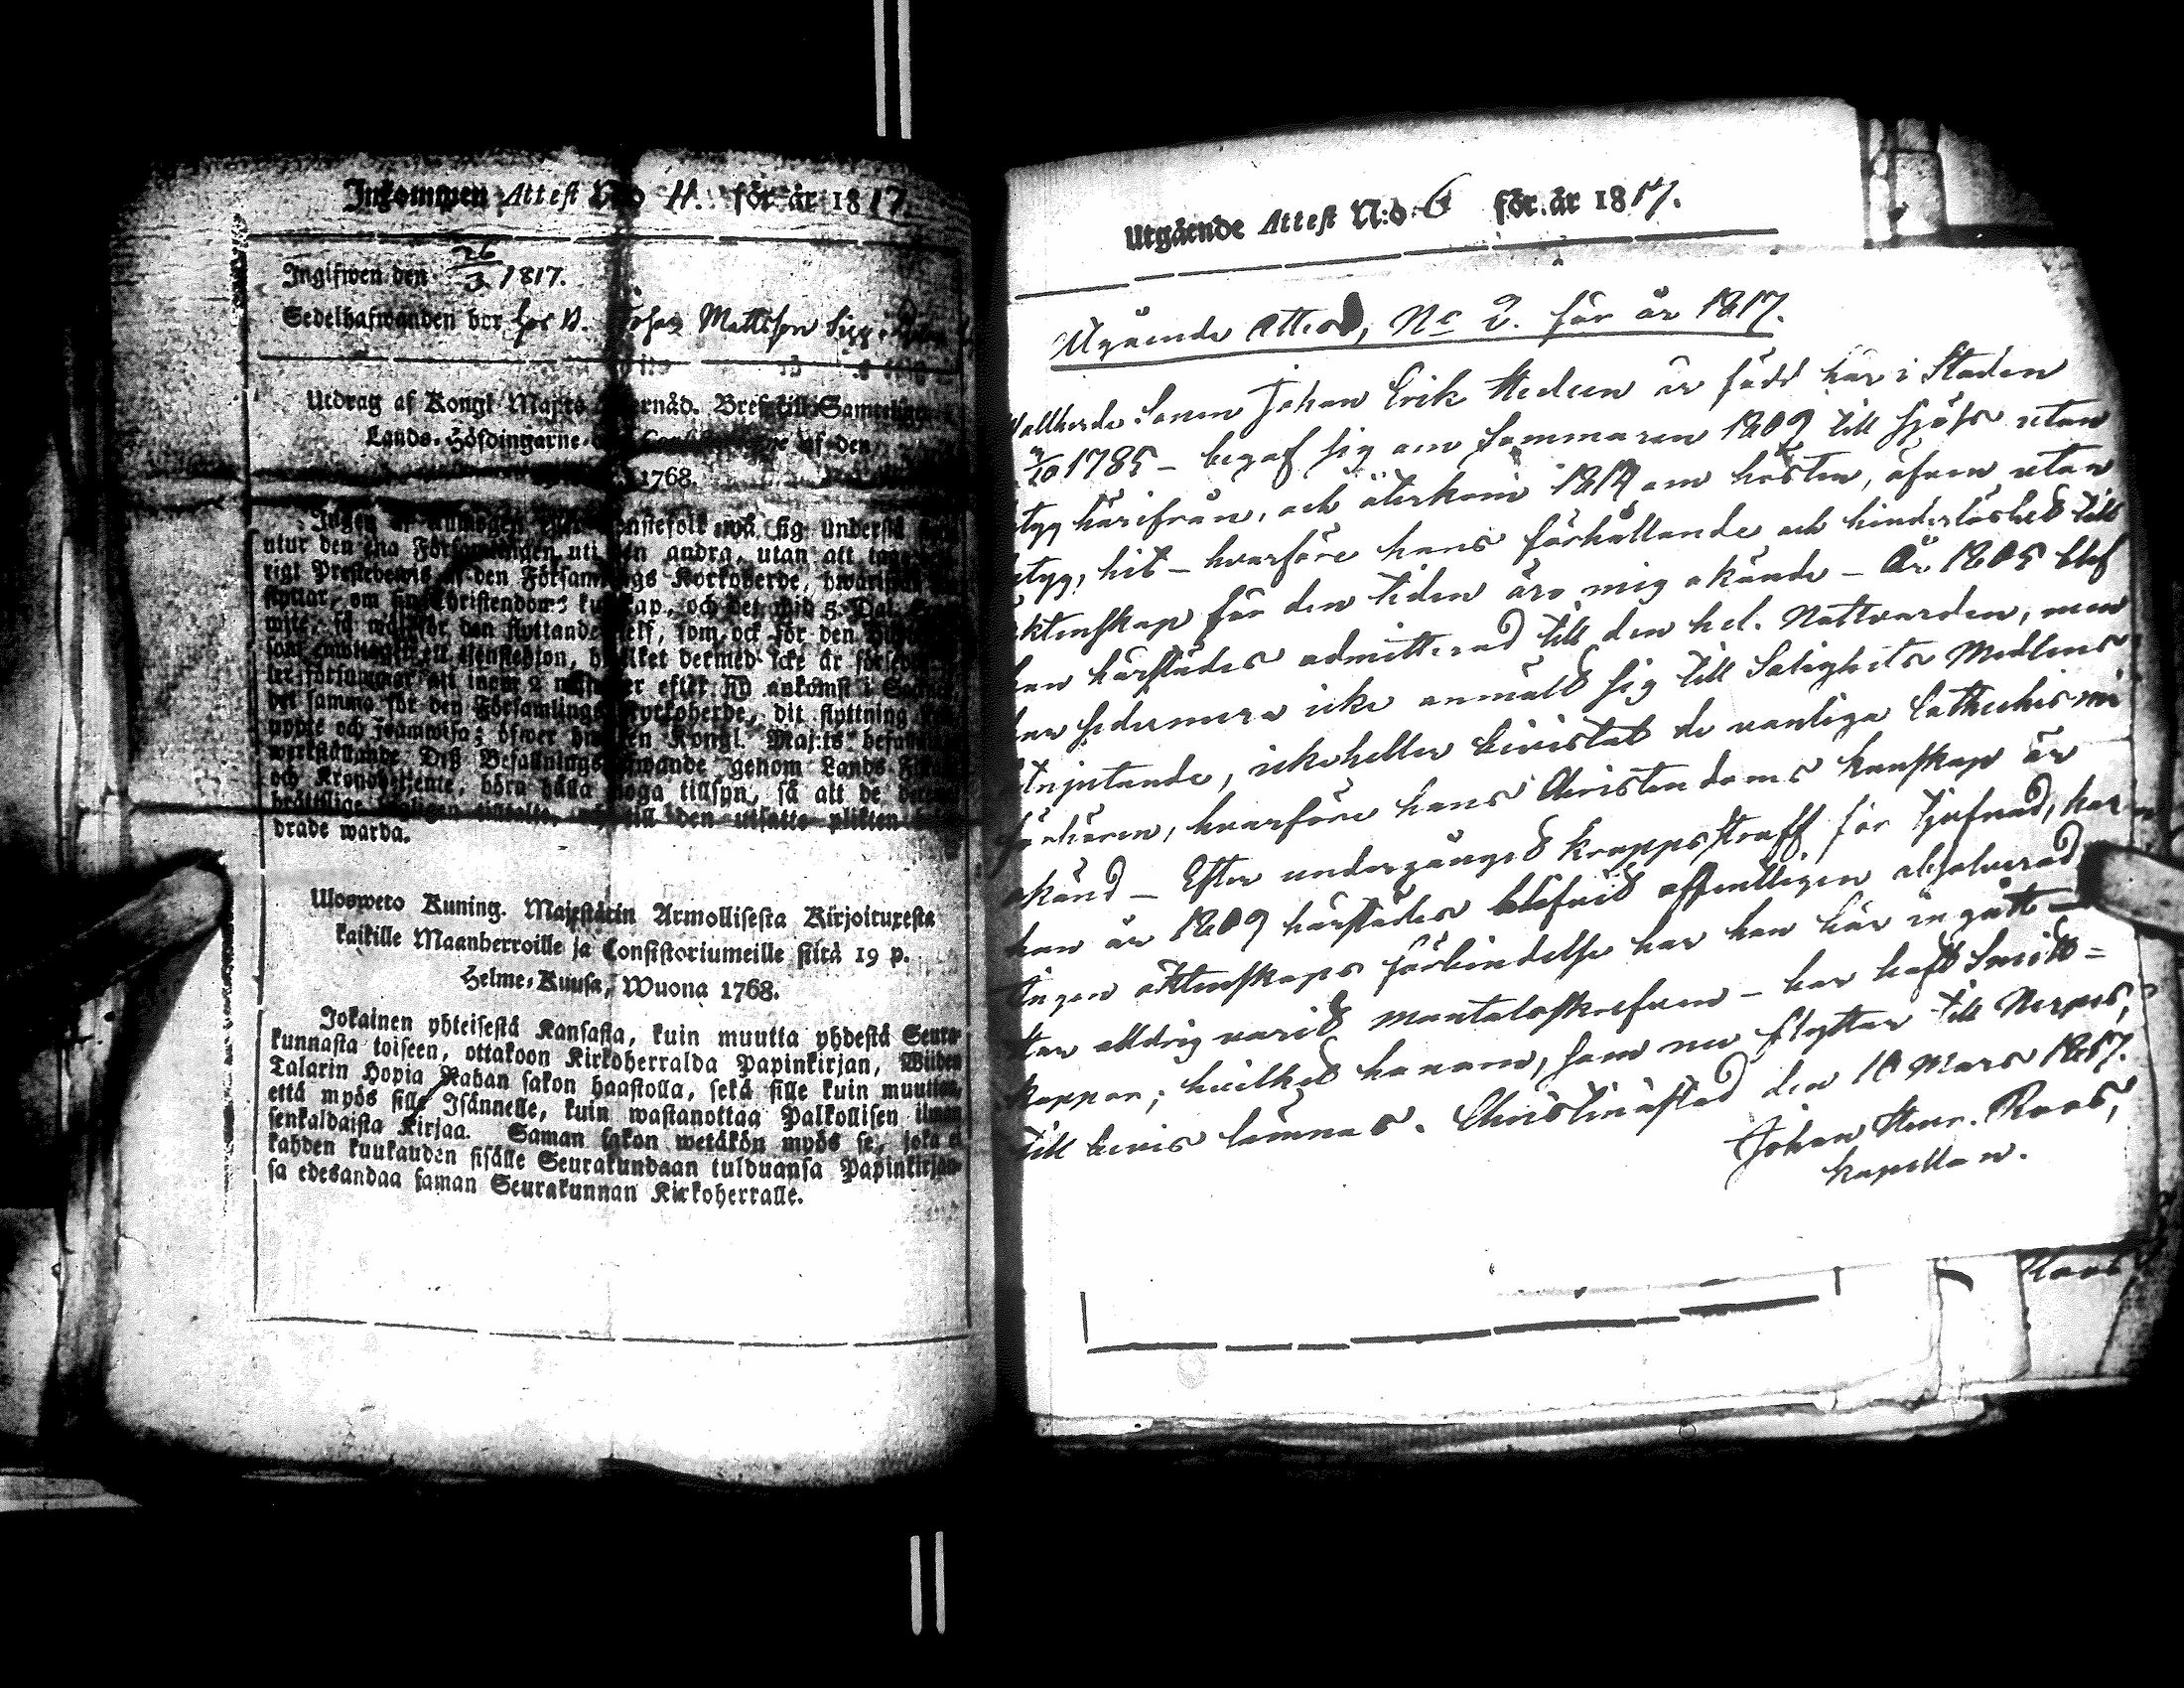 Inkommen Attest N:o 11. för år 1817.
Ingifwen den 26/3 1817.
Sedelhafwanden bor hos B. Johan Mattsson
Utdrag af Kongl. Maj:ts Bref till Samtelige
Lands-Höfdingarne af den
1768.
Ingen af må sig understå
utur den ena Församlingen uti den andra, utan att
rigt Prestebewis af den Församlings Kyrkoherde, hwarifrån
flyttar, om sin Christendoms kunskap, och det wid 5 Dal.
wite, så wäl för den flyttande sjelf, som ock för den
som emottager ett tjenstehjon, hwilket dermed icke är
ler försummar att inom 2 månader efter sin ankomst i
det samma för den Församlings Kyrkoherde, dit flyttning
uppte och framwisa; öfwer hwilken Kongl. Maj:ts
werkställande Deß Befallningshafwande genom Lands
och Kronobetjente, böra hålla noga tillsyn, så att de
brottslige till den utsatte plikten
drade warda.
Ulosweto Kuning. Majestätin Armollisesta Kirjoituxesta
kaikille Maanherroille ja Consistoriumeille siitä 19 p.
Helme-Kuusa, Wuona 1768.
Jokainen yhteisestä Kansasta, kuin muutta yhdestä Seura-
kunnasta toiseen, ottakoon Kirkoherralda Papinkirjan, Wiiden
Talarin Hopia Rahan sakon haastolla, sekä sille kuin muuttaa,
että myös sille Isännelle, kuin wastanottaa Palkollisen ilman
senkaldaista Kirjaa. Saman sakon wetäkön myös se, joka ei
kahden kuukauden sisälle Seurakundaan tulduansa Papinkirjan-
sa edesandaa saman Seurakunnan Kirkoherralle.
Utgående Attest N:o 6 för år 1817.
Utgående Attest, No 2. för år 1817.
Vallherde Sonen Johan Erik Hedeen är född här i Staden
/10 1785 – begaf sig om Sommaren 1809 till Sjöfs utan
etyg härifrån, och återkom 1814 om hösten, äfven utan
etyg, hit – hvarföre hans förhållande och hinderlöshet till
äktenskap för den tiden äro mig okände – År 1805 blef
han härstädes admitterad till den hel. Nattvarden, men
har sedermera icke anmält sig till Salighets Medlens
åtnjutande, icke heller bivistat de vanliga Cathechismi
förhören, hvarföre hans Christendoms kunskap är
okänd – Efter undergånget kroppsstraff för tjufnad, har
han år 1809 härstädes blifvit offentligen absolverad.
Ingen äktenskaps förbindelse har han här ingått –
Har aldrig varit mantalsskrefven – har haft Smitt-
koppor; hvilket honom, som nu flyttar till Nerpes,
till bevis lämnas. Christinæstad den 10 Mars 1817.
Johan Henr. Roos,
kapellan.
Roos